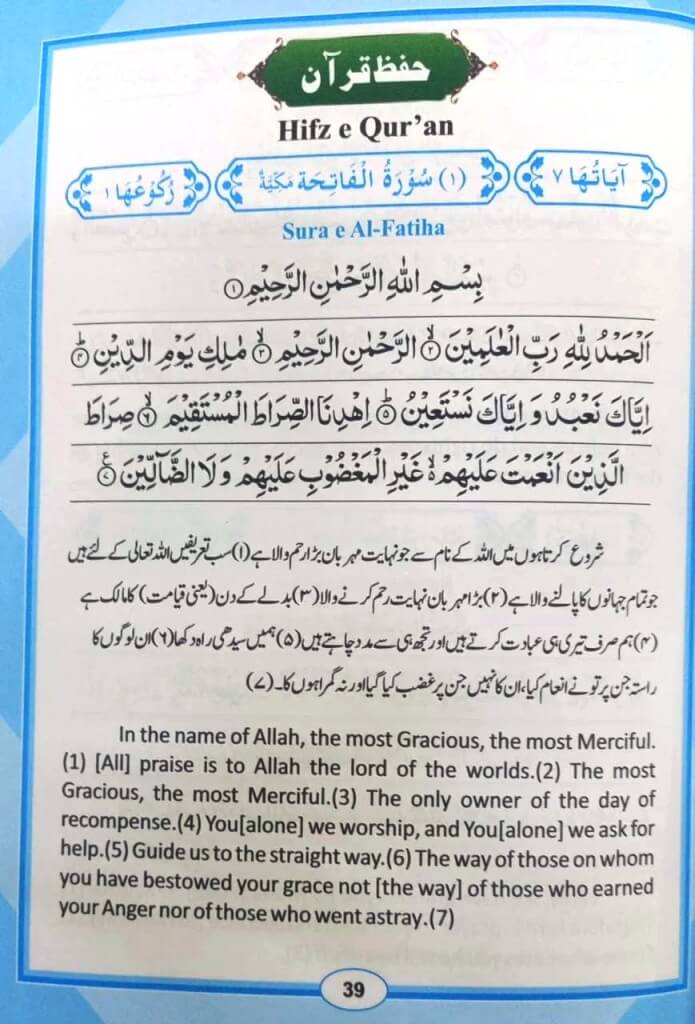 حفظ قرآن
Hifz e Qur'an
اٰیَاتُهَا ۷ (۱) سُوْرَةُ الْفَاتِحَة مَكِّیَّةٌ رُكُوْعُهَا ۱
Sura e Al-Fatiha
بِسْمِ اللّٰهِ الرَّحْمٰنِ الرَّحِیْمِ ۱
اَلْحَمْدُ لِلّٰهِ رَبِّ الْعٰلَمِیْنَ ۙ۲ الرَّحْمٰنِ الرَّحِیْمِ ۙ۳ مٰلِكِ یَوْمِ الدِّیْنِ ؕ۴
اِیَّاكَ نَعْبُدُ وَ اِیَّاكَ نَسْتَعِیْنُ ؕ۵ اِهْدِنَا الصِّرَاطَ الْمُسْتَقِیْمَ ۙ۶ صِرَاطَ
الَّذِیْنَ اَنْعَمْتَ عَلَیْهِمْ ۙ۬ غَیْرِ الْمَغْضُوْبِ عَلَیْهِمْ وَ لَا الضَّآلِّیْنَ ۷ع
شروع کرتا ہوں میں اللہ کے نام سے جو نہایت مہربان بڑا رحم والا ہے (۱) سب تعریفیں اللہ تعالی کے لئے ہیں
جو تمام جہانوں کا پالنے والا ہے (۲) بڑا مہربان نہایت رحم کرنے والا (۳) بدلے کے دن (یعنی قیامت) کا مالک ہے
(۴) ہم صرف تیری ہی عبادت کرتے ہیں اور تجھ ہی سے مدد چاہتے ہیں (۵) ہمیں سیدھی راہ دکھا (۶) ان لوگوں کا
راستہ جن پر تو نے انعام کیا، ان کا نہیں جن پر غضب کیا گیا اور نہ گمراہوں کا۔ (۷)
In the name of Allah, the most Gracious, the most Merciful.
(1) [All] praise is to Allah the lord of the worlds.(2) The most
Gracious, the most Merciful.(3) The only owner of the day of
recompense.(4) You[alone] we worship, and You[alone] we ask for
help.(5) Guide us to the straight way.(6) The way of those on whom
you have bestowed your grace not [the way] of those who earned
your Anger nor of those who went astray.(7)
39